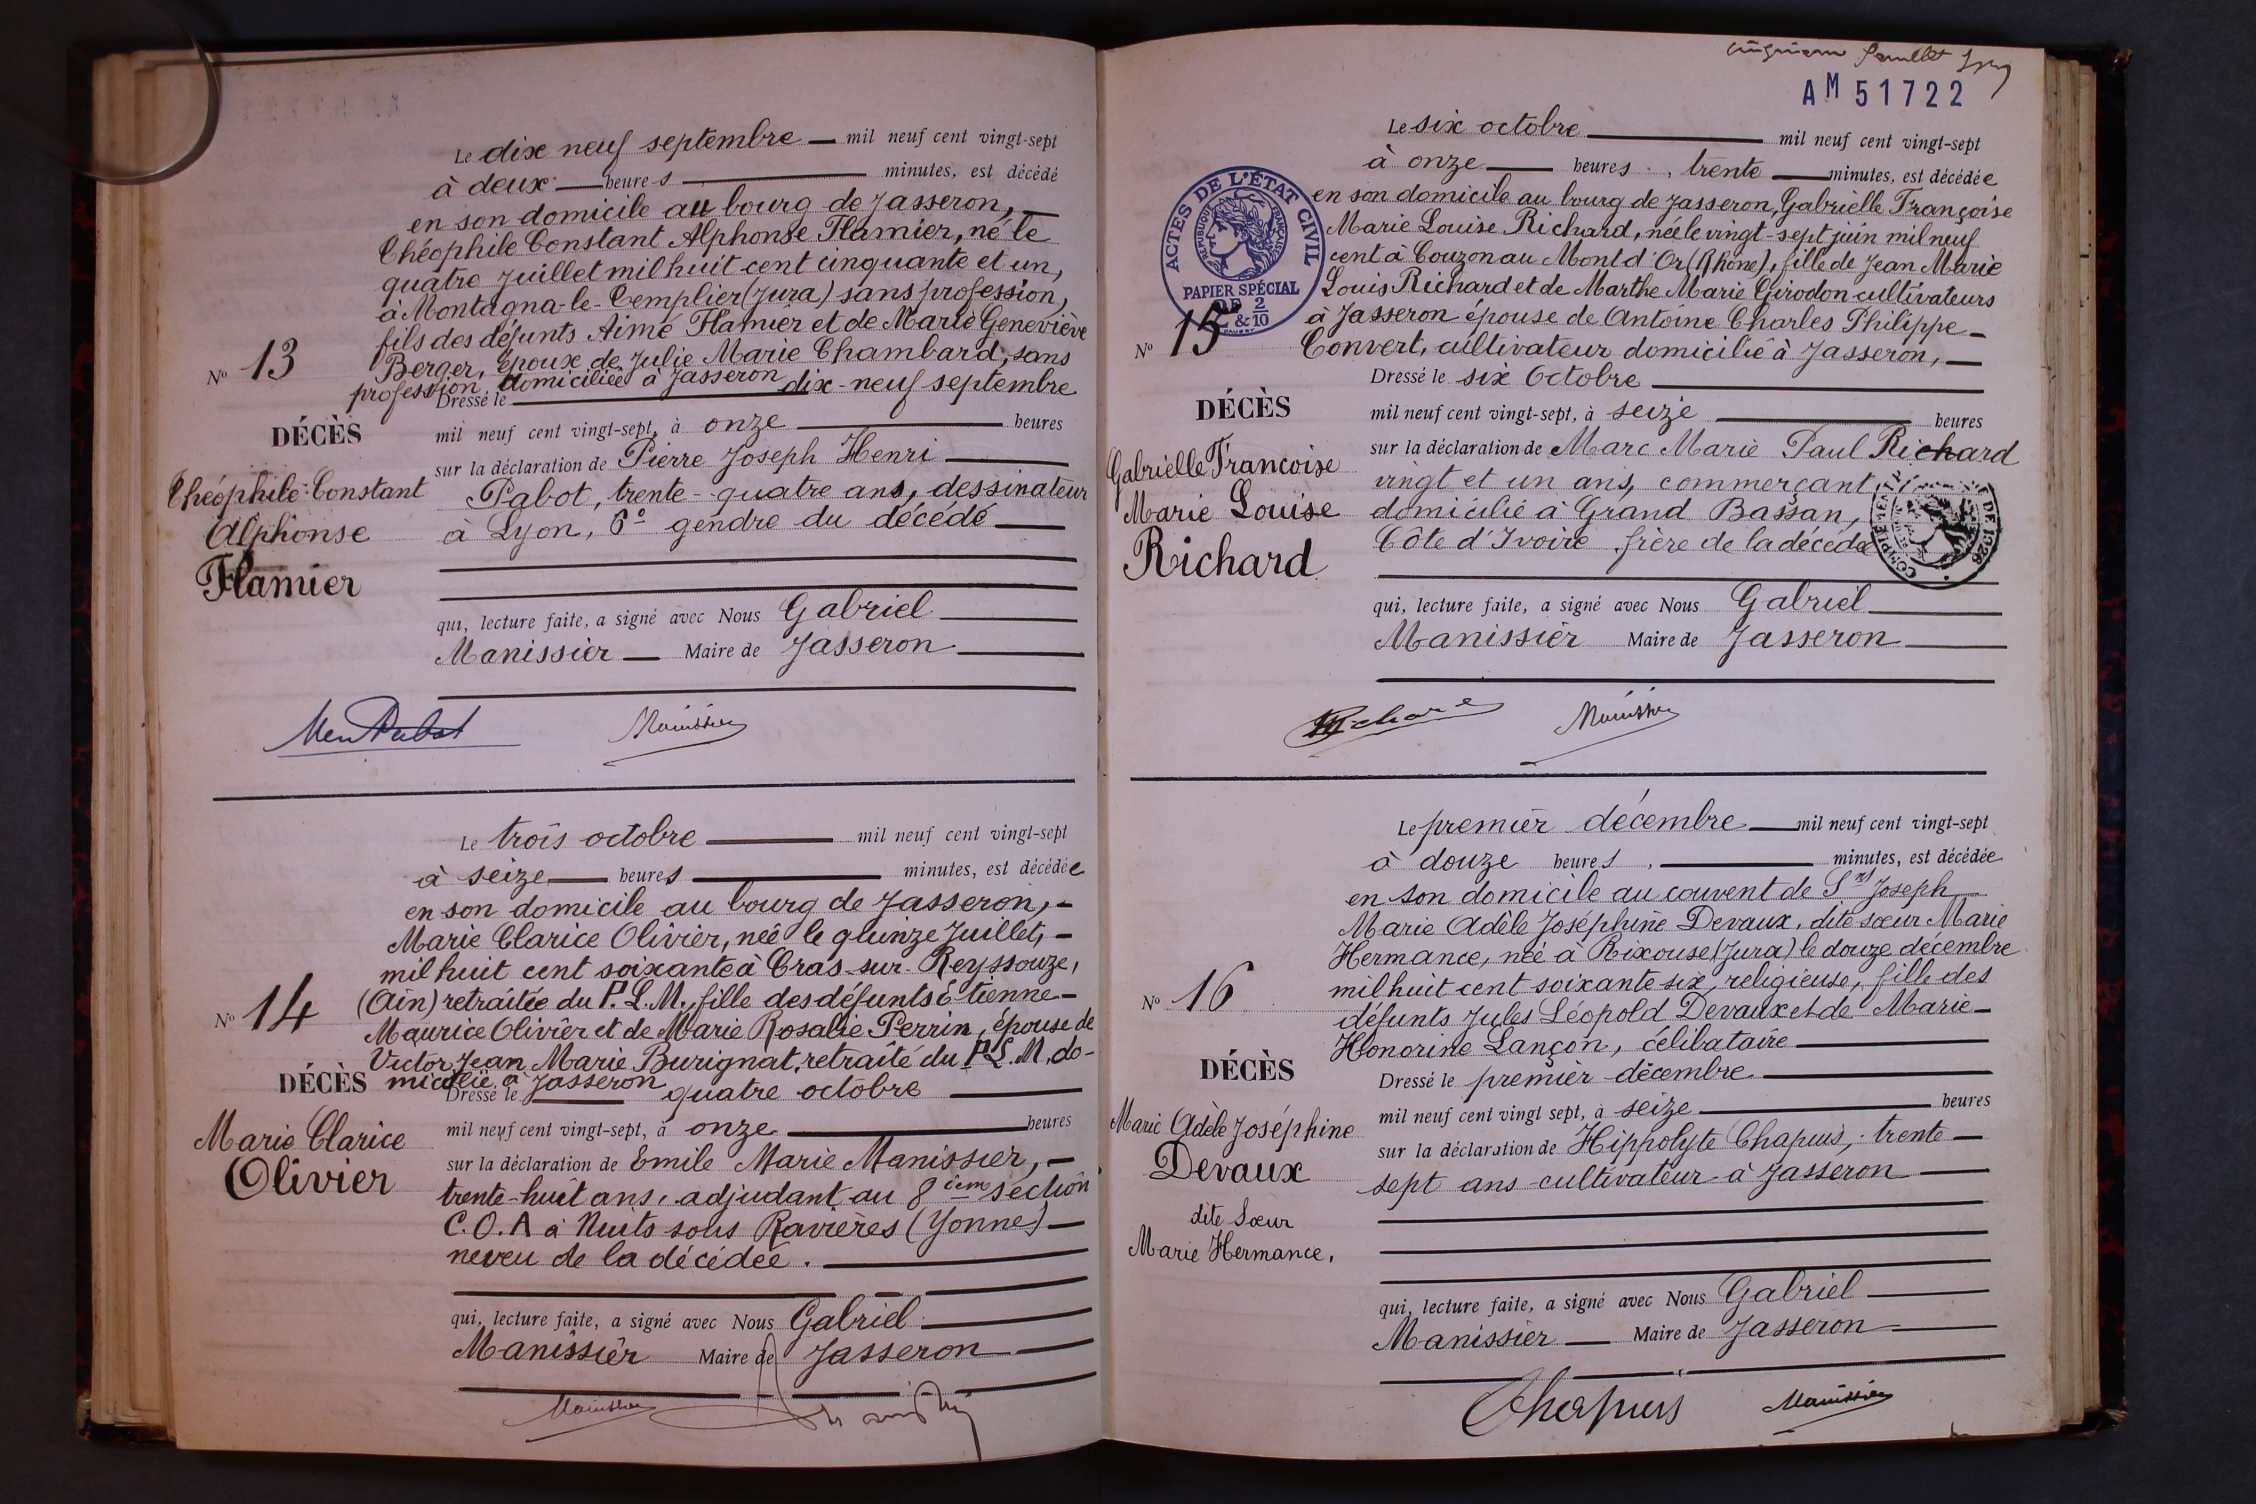 Le dix neuf septembre — mil neuf cent vingt-sept
à deux — heures — minutes, est décédé
en son domicile au bourg de Jasseron, —
Théophile Constant Alphonse Flamier, né le
quatre Juillet mil huit cent cinquante et un,
à Montagna-le-Templier (Jura) sans profession,
fils des défunts Aimé Flamier et de Marie Geneviève
Berger, époux de Julie Marie Chambard, sans
profession, domiciliée à Jasseron
N° 13
Dressé le — dix-neuf septembre
DÉCÈS
mil neuf cent vingt-sept, à onze — heures
sur la déclaration de Pierre Joseph Henri —
Théophile Constant
Alphonse
Flamier
Pabot, trente-quatre ans, dessinateur
à Lyon, 6° gendre du décédé —
qui, lecture faite, a signé avec Nous Gabriel —
Manissier — Maire de Jasseron —
Manissier
Le trois octobre — mil neuf cent vingt-sept
à seize — heures — minutes, est décédée
en son domicile au bourg de Jasseron, —
Marie Clarice Olivier, neé le quinze Juillet, —
mil huit cent soixante à Cras-sur-Reyssouze,
(Ain) retraitée du P.L.M., fille des défunts Etienne —
Maurice Olivier et de Marie Rosalie Perrin, épouse de
Victor Jean Marie Burignat, retraité du P.L.M, do-
micilié à Jasseron
N° 14
DÉCÈS
Marie Clarice
Olivier
Dressé le — quatre octobre —
mil neuf cent vingt-sept, à onze — heures
sur la déclaration de Emile Marie Manissier, —
trente-huit ans, adjudant au 8ième section
C.O.A à Nuits sous Ravières (Yonne) —
neveu de la décédée. —
qui, lecture faite, a signé avec Nous Gabriel —
Manissier Maire de Jasseron —
Manissier
feuillet
AM 51722
Le six octobre — mil neuf cent vingt-sept
à onze — heures, trente — minutes, est décédée
en son domicile au bourg de Jasseron, Gabrielle Françoise
Marie Louise Richard, née le vingt-sept juin mil neuf
cent à Couzon au Mont d'Or (Rhône), fille de Jean Marie
Louis Richard et de Marthe Marie Girodon cultivateurs
à Jasseron épouse de Antoine Charles Philippe —
Convert, cultivateur domicilié à Jasseron, —
ACTES DE L'ÉTAT CIVIL
RÉPUBLIQUE FRANÇAISE
PAPIER SPÉCIAL
& 2/10
N° 15
DÉCÈS
Gabrielle Francoise
Marie Louise
Richard
Dressé le six Octobre —
mil neuf cent vingt-sept, à seize — heures
sur la déclaration de Marc Marie Paul Richard
vingt et un ans, commerçant
domicilié à Grand Bassan,
Côte d'Ivoire, frère de la décédée
DE 1926
qui, lecture faite, a signé avec Nous Gabriel —
Manissier Maire de Jasseron —
Richard
Manissier
Le premier décembre — mil neuf cent vingt-sept
à douze heures, — minutes, est décédée
en son domicile au couvent de Srs Joseph
Marie Adèle Joséphine Devaux, dite sœur Marie
Hermance, née à Rixouse (Jura) le douze décembre
mil huit cent soixante six, religieuse, fille des
défunts Jules Léopold Devaux et de Marie —
Honorine Lançon, célibataire —
N° 16
DÉCÈS
Marie Adèle Joséphine
Devaux
dite Sœur
Marie Hermance,
Dressé le premier décembre —
mil neuf cent vingt sept, à seize — heures
sur la déclaration de Hippolyte Chapuis, trente —
sept ans cultivateur à Jasseron —
qui, lecture faite, a signé avec Nous Gabriel —
Manissier — Maire de Jasseron —
Chapuis
Manissier